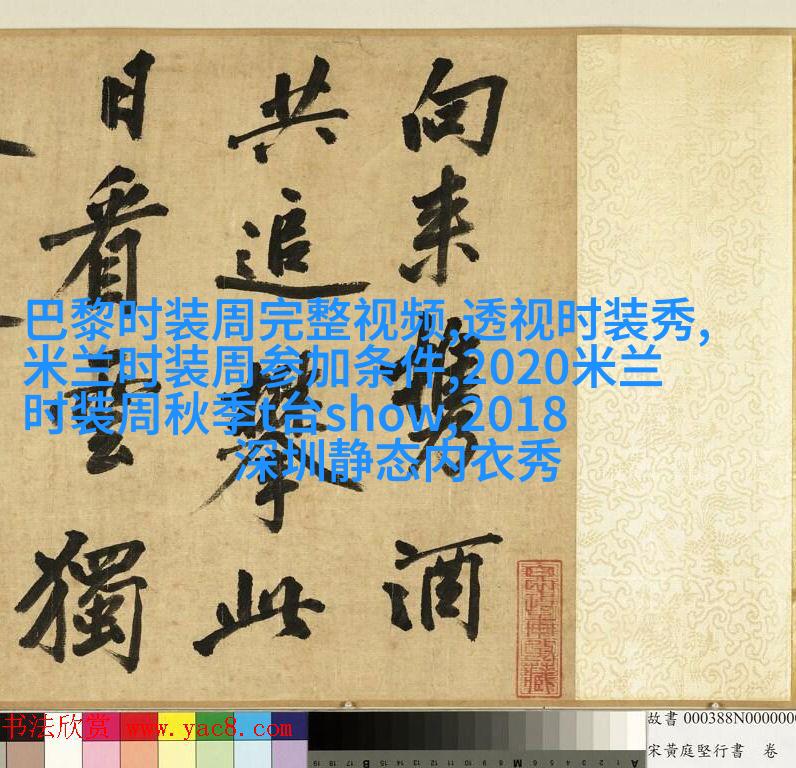 向来携酒
共追攀此
日看雲獨
巴黎时装周完整视频,透视时装秀,
米兰时装周参加条件,2020米兰
时装周秋季t台show,2018
深圳静态内衣秀
书法欣赏 www.yac8.com
故書 000388N0000000
宋黃庭堅行書 卷